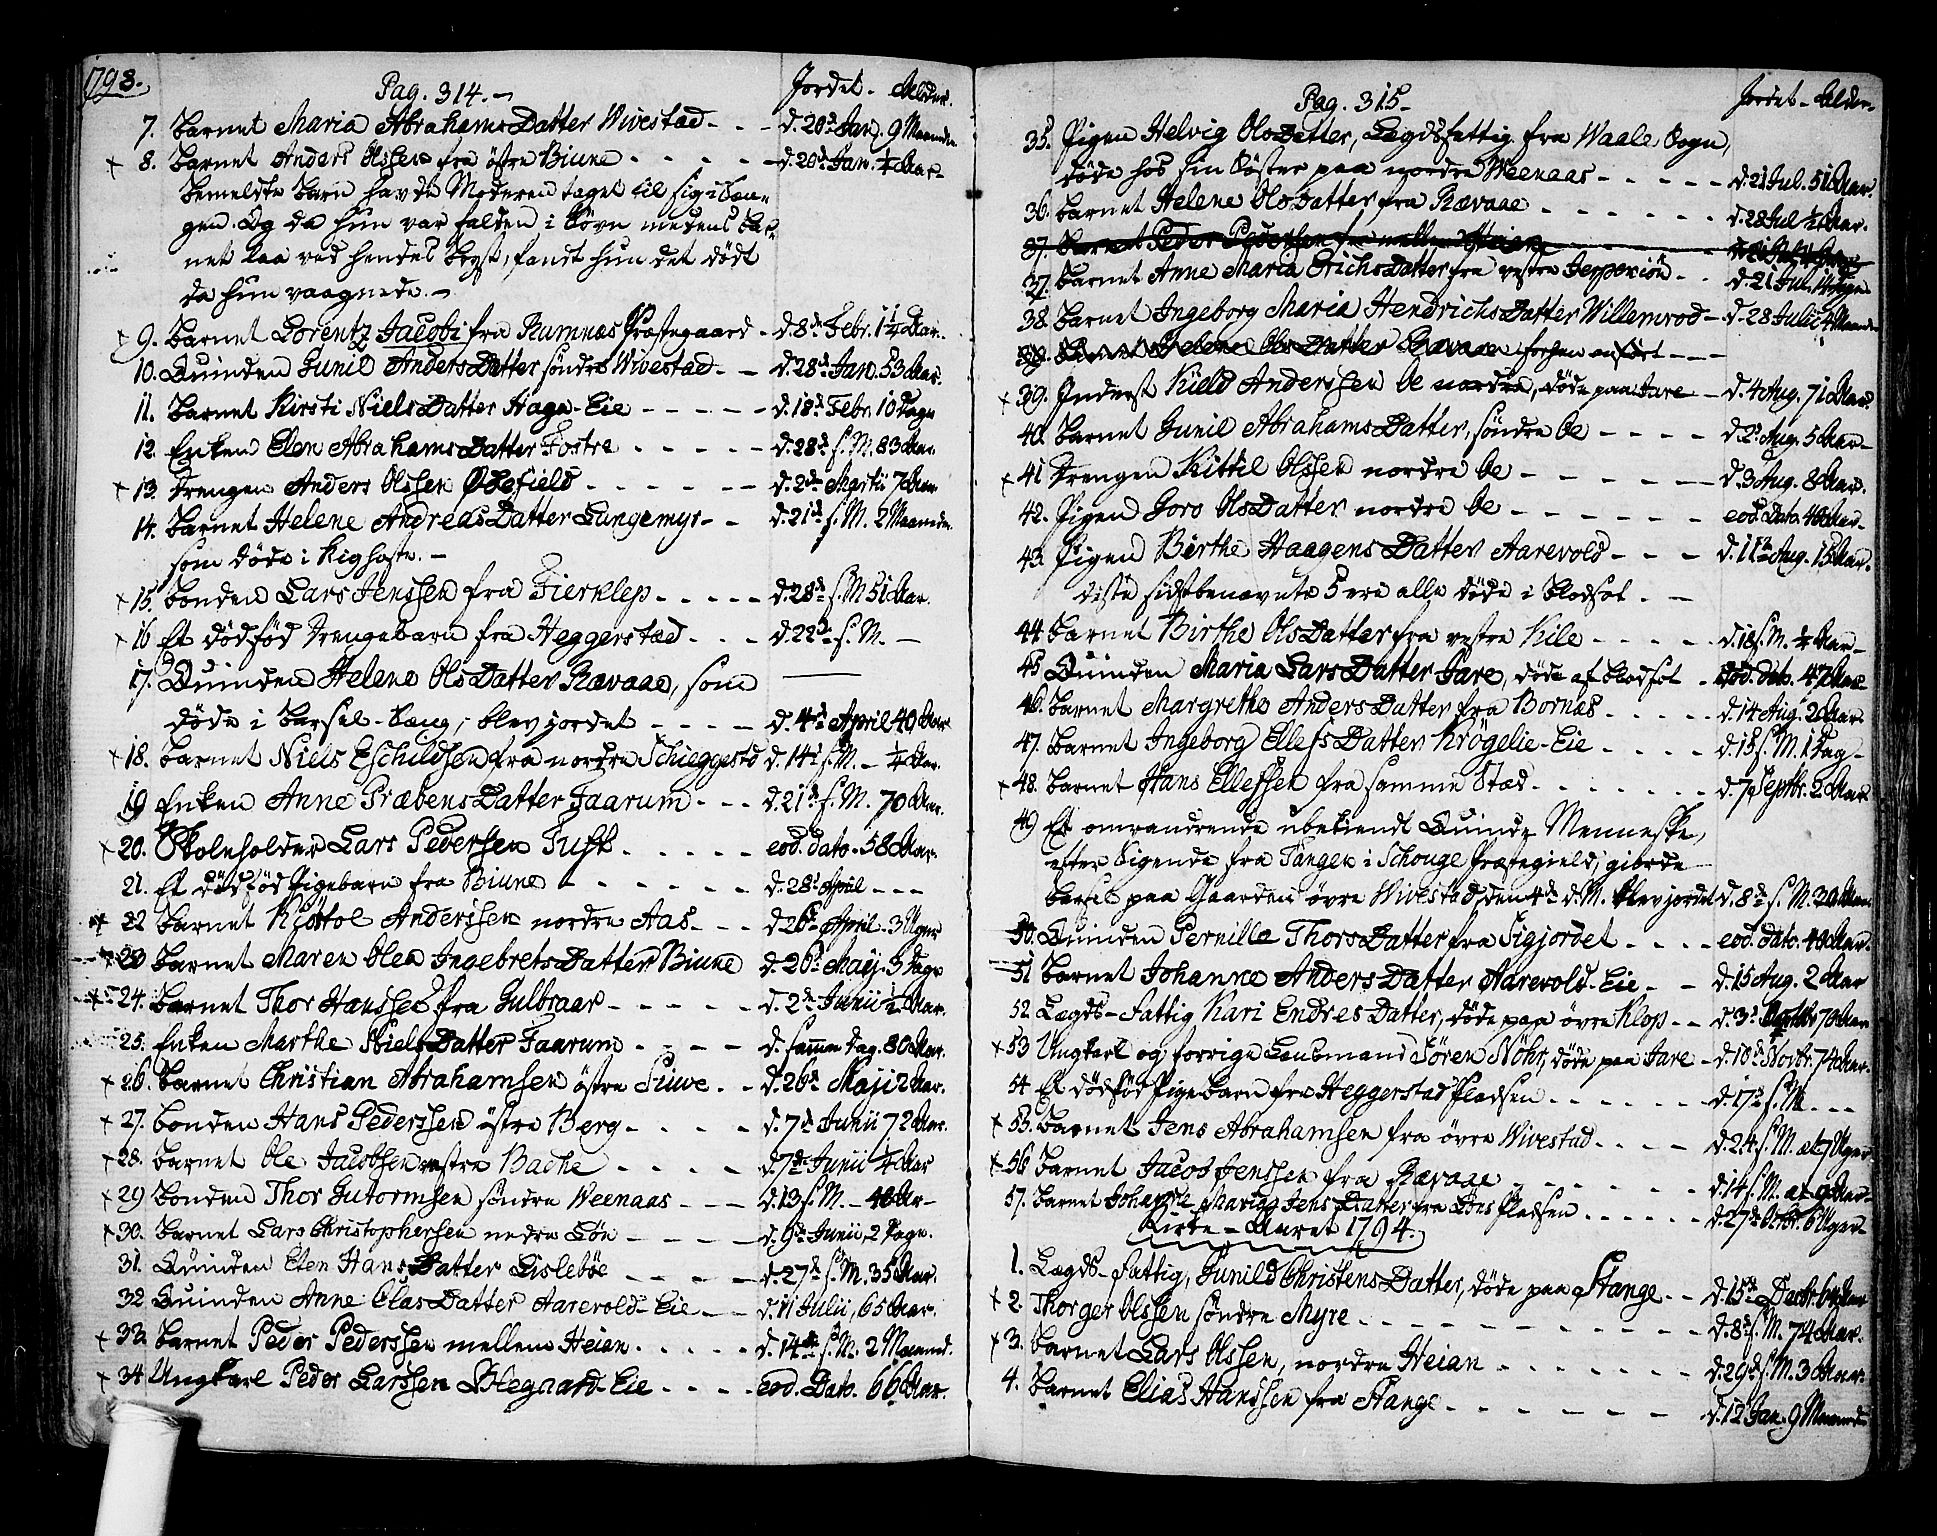 1793.
Pag. 314.
Jordet. Alder.
7. Barnet Maria AbrahamsDatter Wivestad - - - d. 20d Jan. 9 Maaneder
+ 8. Barnet Anders Olssen fra östre Biune - - - - - d. 20d Jan. ¼ Aar
Bemeldte Barn havde Moderen taget til sig i Sæn-
gen. Og da hun var falden i Søvn medens Bar-
net laa ved hendes Bryst, fandt hun det dødt
da hun vaagnede. -
+ 9. Barnet Lorentz Jacobi fra Ramnæs Præstegaard - d. 8d Febr. 1¼ Aar.
10. Quinden Gunil AndersDatter söndre Wivestad - - d. 28d Jan. 53 Aar.
11. Barnet Kirsti NielsDatter Haga-Eie - - - - - d. 18d Febr. 10 Dage
12. Enken Elen AbrahamsDatter Fostre - - - - - d. 28d s. M. 83 Aar
+ 13. Drengen Anders Olssen Ødefield - - - - - - d. 2d Martii 7 Aar
14. Barnet Helene AndreasDatter Langemyr - - d. 21d s. M. 2 Maaneder
som døde i Kighoste. -
+ 15. Bonden Lars Jenssen fra Fierklep - - - - - d. 28d s. M 51 Aar.
+ 16 Et dödföd Drengebarn fra Heggerstad - - - d. 22d s. M. -
17. Quinden Helene OlsDatter Rævaae, som
døde i Barsel-Sæng, blev jordet - - - - d. 4d April 40 Aar
+ 18. Barnet Niels Eschildsen fra nordre Schieggestd d. 14d s. M. - ¼ Aar.
19 Enken Anne PræbensDatter Faarum - - - d. 21d s. M. 70 Aar.
+ 20. Skoleholder Lars Pedersen Tufte - - - - - eod. dato - 58 Aar.
21. Et dödföd Pigebarn fra Biune - - - - - - d. 28d April - - -
+ 22 Barnet Kjöstol Anderssen nordre Aas - - - d. 26d April - 3 Uger
23 Barnet Maren Olea IngebretsDatter Biune d. 26d Maij. 3 Dage
+ 24. Barnet Thor Hanssen fra Gulbraar - - - - - d. 2d Junii ½ Aar.
25. Enken Marthe NielsDatter Faarum - - - - d. samme dag. 80 Aar.
+ 26. Barnet Christian Abrahamsen östre Tuwe - - d. 26d Maji 2 Aar.
+ 27. Bonden Hans Pederssen östre Berg - - - - d. 7d Junii 72 Aar.
+ 28. Barnet Ole Jacobsen vestre Bache - - - - - d. 7d Junii ¼ Aar
+ 29 Bonden Thor Gutormsen söndre Weenaas - - - d. 13 s. M. - 48 Aar -
+ 30. Barnet Lars Christophersen nedre Lön - - d. 9d Junii, 2 Dage.
31. Quinden Elen HansDatter Lisleböe - - - - - d. 27d s. M. 35 Aar.
32 Quinden Anne OlasDatter Aarevold-Eie - - - d. 11 Julii, 65 Aar.
+ 33. Barnet Peder Pederssen mellem Heian - - - - - d. 14d s. M. 2 Maaned.
+ 34 Ungkarl Peder Larssen Østegaard-Eie - - - - eod. Dato. 66 Aar.
Pag. 315.
Jordet - Alder.
35. Pigen Helvig OlsDatter, Lægdsfattig fra Waale Sogn,
døde hos sin Søster paa nordre Weenaas - - - - - d. 21 Jul. 51 Aar.
36. Barnet Helene OlsDatter fra Rævaae - - - - - - d. 28 Jul ½ Aar.
37. Barnet Peder Pedersen fra mellem Heian
37. Barnet Anne Maria ErichsDatter fra vestre Jepperiön - - d. 21 Jul. 14 Dage
38. Barnet Ingeborg Maria HendrichsDatter Willemrod - d. 28 Julii 4 Maaneder
39. Barnet Helene OlsDatter Rævaae forhen anført - - -
+ 39. Inderst Kield Anderssen Oe nordre, døde paa Jare - d. 4 Aug. 71 Aar.
40. Barnet Gunil AbrahamsDatter, söndre Oe - - - - d. 2d Aug. 5 Aar -
+ 41 Drengen Kittil Olssen nordre Oe - - - - - - - d. 3 Aug. 8 Aar.
42. Pigen Goro OlsDatter nordre Oe - - - - - - eod. Dato. 40 Aar -
43. Pigen Berthe HaagensDatter Aarevold - - - d. 11d Aug. 15 Aar.
Disse sidstbenævnte 5 ere alle døde i Blodsot. -
44. Barnet Birthe OlsDatter fra vestre Kile - - - - - d. 18 s. M. ¼ Aar -
45 Quinden Maria LarsDatter Jare, døde af Blodsot - eod. dato. 47 Aar
46. Barnet Margrethe AndersDatter fra Bornæs - - - - - d. 14 Aug. 2 Aar
47. Barnet Ingeborg EllefsDatter Krögelie-Eie - - - - d. 15 s. M. 1 Dag -
+ 48. Barnet Hans Ellefssen fra samme Stæd - - - - - - - d. 7 Septbr. 2 Aar
49 Et omvandrende ubekiendt Quinde Menneske,
efter Sigende fra Tangen i Schouge Præstegield, giorde
Barsel paa Gaarden övre Wivestad den 4d d. M. blev jordet d. 8d s. M. 30 Aar
50. Quinden Pernille ThorsDatter fra Sigjordet - - - - eod. dato. 48 Aar.
51 Barnet Johanne AndersDatter Aarevold-Eie - - d. 15 Aug. 2 Aar
52. Lægds-Fattig Kari EndresDatter, døde paa övre Klop - - d. 3d 70 Aar
+ 53 Ungkarl og forrige Lensmand Sören Nöhr, døde paa Jare - d. 10d Novbr. 74 Aar.
54 Et dödföd Pigebarn fra HeggerstadPladsen - - - - - - - d. 17d s. M. - - -
+ 55. Barnet Jens Abrahamsen fra övre Wivestad - - - - d. 24. s. M. æt. 7 Uger
+ 56 Barnet Jacob Jenssen fra Rævaae - - - - - - - d. 14 s. M. æt. 9 Aar -
57. Barnet Johanne Maria JensDatter fra Löns Pladsen - - - - - - d. 27d Octbr. 6 Uger -
Kirke-Aaret 1794.
1. Lægds-fattig, Gunild ChristensDatter, døde paa Stange - - d. 15d Decbr. 64 Aar
+ 2. Thorger Olssen söndre Myre - - - - - - - - - d. 8d s. M. 74 Aar.
+ 3. Barnet Lars Olssen, nordre Heian - - - - - - - d. 29d s. M. 3 Aar.
4. Barnet Elias Hanssen fra Stange - - - - - - - - d. 12 Jan. 9 Maaneder